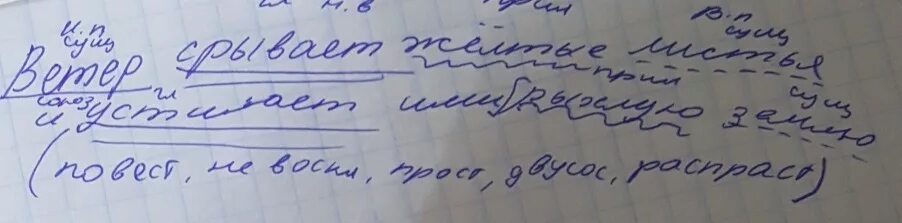 и.в прил
и.п сущ В.п сущ
Ветер срывает жёлтые листья
союз гл прил сущ
и устилает ими рыхлую землю
(повест, не воскл, прост, двусос, распраст)